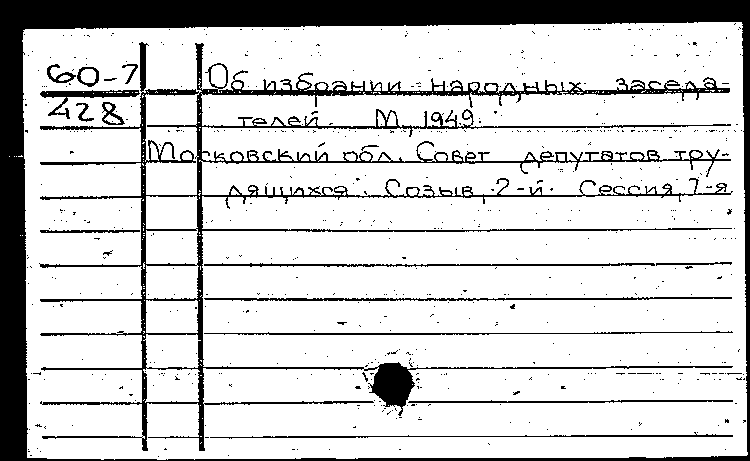 60-7 Об избрании народных заседа-
428 телей. М., 1949.
Московский обл. Совет депутатов тру-
дящихся. Созыв, 2-й. Сессия, 7-я